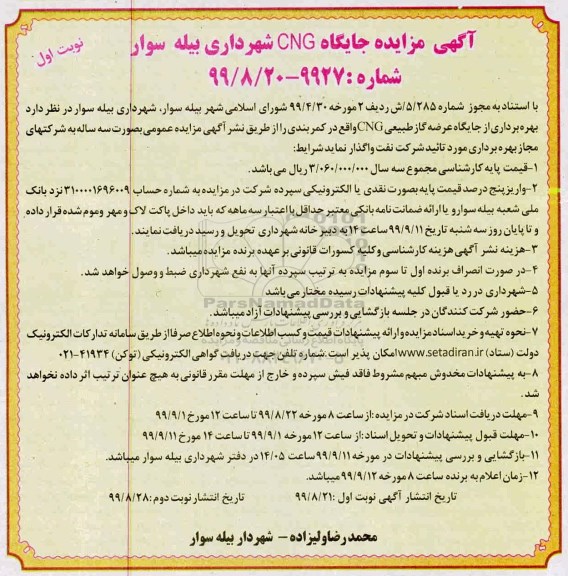 آگهی مزایده جایگاه CNG شهرداری بیله سوار
نوبت اول
شماره : ۹۹۲۷-۹۹/۸/۲۰
با استناد به مجوز شماره ۵/۲۸۵/ش ردیف ۲ مورخه ۹۹/۴/۳۰ شورای اسلامی شهر بیله سوار، شهرداری بیله سوار در نظر دارد
بهره برداری از جایگاه عرضه گاز طبیعی CNG واقع در کمربندی را از طریق نشر آگهی مزایده عمومی بصورت سه ساله به شرکتهای
مجاز بهره برداری مورد تائید شرکت نفت واگذار نماید شرایط:
۱-قیمت پایه کارشناسی مجموع سه سال ۳/۰۶۰/۰۰۰/۰۰۰ ریال می باشد.
۲-واریز پنج درصد قیمت پایه بصورت نقدی یا الکترونیکی سپرده شرکت در مزایده به شماره حساب ۳۱۰۰۰۰۱۶۹۶۰۰۹ نزد بانک
ملی شعبه بیله سوار و یا ارائه ضمانت نامه بانکی معتبر حداقل با اعتبار سه ماهه که باید داخل پاکت لاک و مهر و موم شده قرار داده
و تا پایان روز سه شنبه تاریخ ۹۹/۹/۱۱ ساعت ۱۴ به دبیر خانه شهرداری تحویل و رسید دریافت نمایند.
۳-هزینه نشر آگهی هزینه کارشناسی و کلیه کسورات قانونی بر عهده برنده مزایده میباشد.
۴-در صورت انصراف برنده اول تا سوم مزایده به ترتیب سپرده آنها به نفع شهرداری ضبط و وصول خواهد شد.
۵-شهرداری در رد یا قبول کلیه پیشنهادات رسیده مختار می باشد
۶-حضور شرکت کنندگان در جلسه بازگشایی و بررسی پیشنهادات آزاد میباشد.
ParsNamadData
۷-نحوه تهیه و خرید اسناد مزایده و ارائه پیشنهادات قیمت و کسب اطلاعات و نحوه اطلاع صرفا از طریق سامانه تدارکات الکترونیک
دولت (ستاد) www.setadiran.ir امکان پذیر است. شماره تلفن جهت دریافت گواهی الکترونیکی (توکن) ۴۱۹۳۴-۰۲۱
۸-به پیشنهادات مخدوش مبهم مشروط فاقد فیش سپرده و خارج از مهلت مقرر قانونی به هیچ عنوان ترتیب اثر داده نخواهد
شد.
۹-مهلت دریافت اسناد شرکت در مزایده :از ساعت ۸ مورخه ۹۹/۸/۲۲ تا ساعت ۱۲ مورخ ۹۹/۹/۱
۱۰-مهلت قبول پیشنهادات و تحویل اسناد :از ساعت ۱۲ مورخه ۹۹/۹/۱ تا ساعت ۱۴ مورخ ۹۹/۹/۱۱
۱۱-بازگشایی و بررسی پیشنهادات در مورخه ۹۹/۹/۱۱ ساعت ۱۴/۰۵ در دفتر شهرداری بیله سوار میباشد.
۱۲-زمان اعلام به برنده ساعت ۸ مورخه ۹۹/۹/۱۲ میباشد.
تاریخ انتشار آگهی نوبت اول :۹۹/۸/۲۱ تاریخ انتشار نوبت دوم :۹۹/۸/۲۸
محمدرضا ولیزاده - شهردار بیله سوار